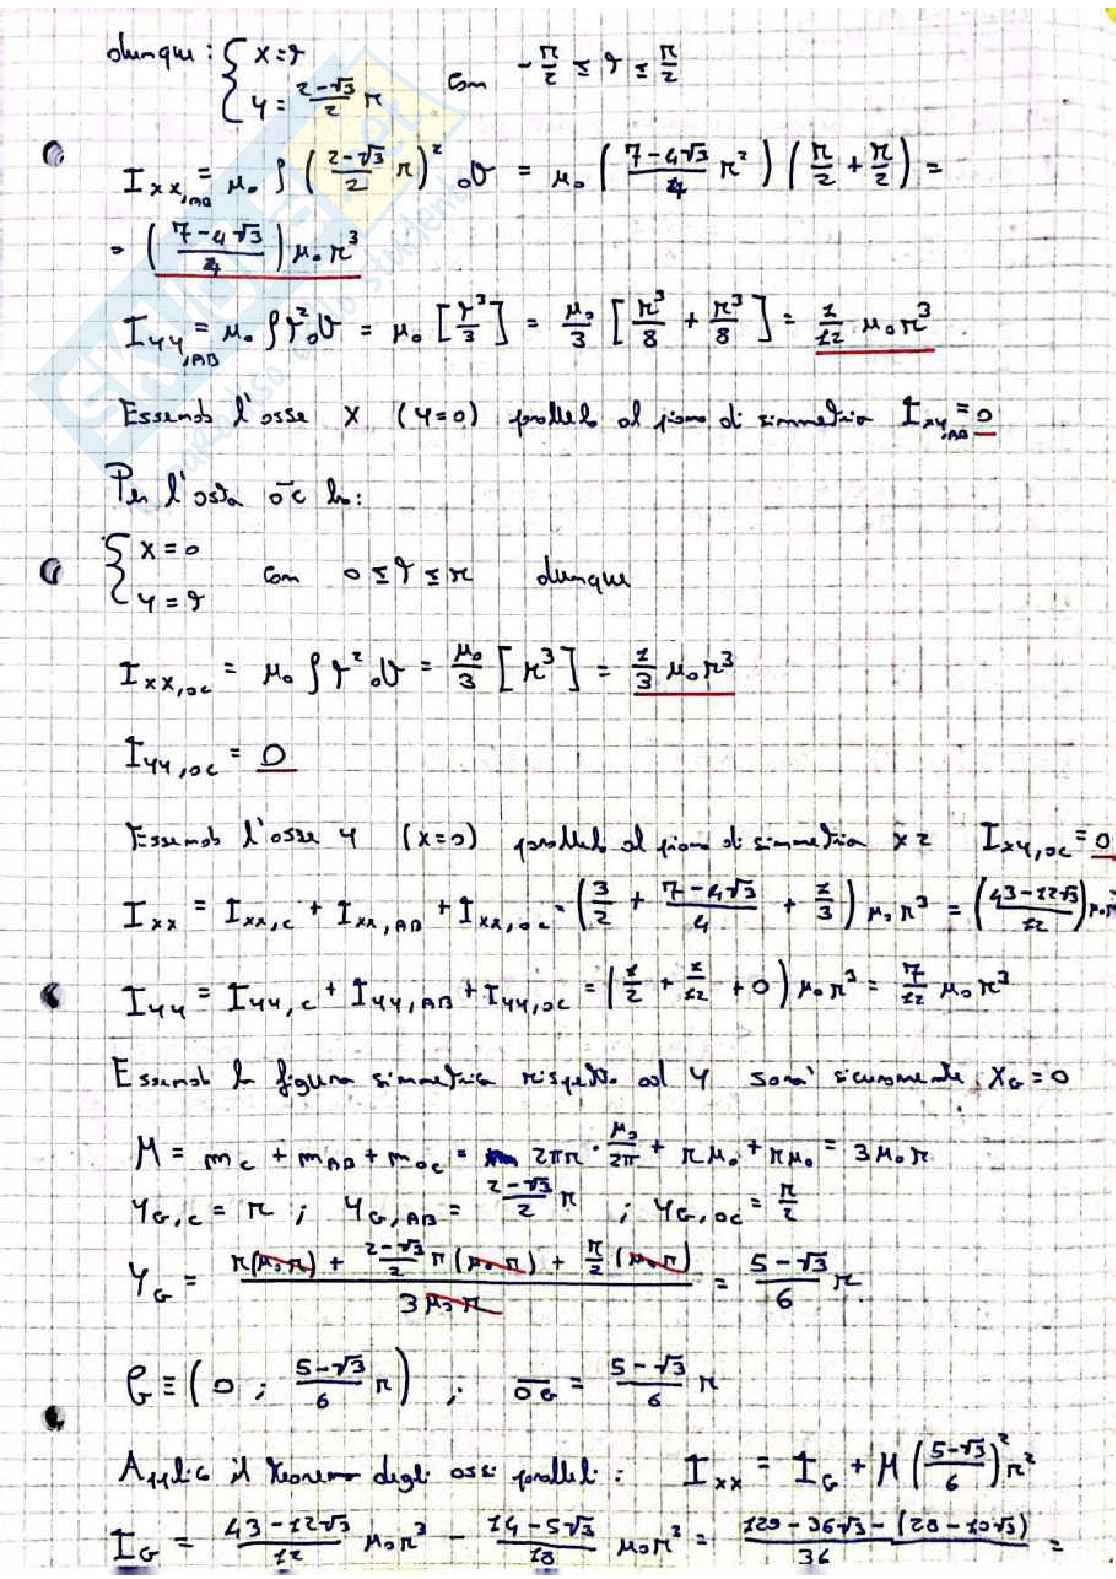 dunque: { x = t
y = (2-√3)/2 r con -r/2 ≤ t ≤ r/2
I_xx,AB = μ₀ ∫ ((2-√3)/2 r)² dt = μ₀ ((7-4√3)/4 r²) (r/2 + r/2) =
= ((7-4√3)/4) μ₀ r³
I_yy,AB = μ₀ ∫ t² dt = μ₀ [t³/3] = μ₀/3 [r³/8 + r³/8] = 1/12 μ₀ r³
Essendo l'asse x (y=0) parallelo al piano di simmetria I_xy,AB = 0
Per l'asta OC ho:
{ x = 0
y = t con 0 ≤ t ≤ r dunque
I_xx,OC = μ₀ ∫ t² dt = μ₀/3 [r³] = 1/3 μ₀ r³
I_yy,OC = 0
Essendo l'asse y (x=0) parallelo al piano di simmetria xz I_xy,OC = 0
I_xx = I_xx,C + I_xx,AB + I_xx,OC = (3/2 + (7-4√3)/4 + 1/3) μ₀ r³ = ((43-12√3)/12) μ₀ r³
I_yy = I_yy,C + I_yy,AB + I_yy,OC = (1/2 + 1/12 + 0) μ₀ r³ = 7/12 μ₀ r³
Essendo la figura simmetrica rispetto ad y sarà sicuramente x_G = 0
M = m_C + m_AB + m_OC = 2πr · μ₀/2π + r μ₀ + r μ₀ = 3 μ₀ r
y_G,C = r ; y_G,AB = (2-√3)/2 r ; y_G,OC = r/2
y_G = (r(μ₀ r) + (2-√3)/2 r (μ₀ r) + r/2 (μ₀ r)) / (3 μ₀ r) = (5-√3)/6 r
G ≡ (0 ; (5-√3)/6 r) ; OG = (5-√3)/6 r
Applico il teorema degli assi paralleli: I_xx = I_G + M ((5-√3)/6)² r²
I_G = (43-12√3)/12 μ₀ r³ - (14-5√3)/18 μ₀ r³ = (129-36√3-(28-10√3))/36 =